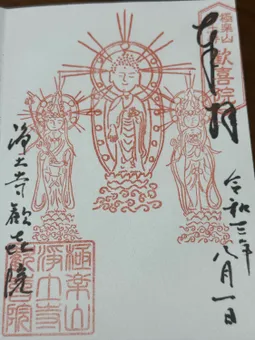 極楽山
歓喜院
奉拝
令和三年八月一日
浄土寺歓喜院
極楽山
浄土寺
歓喜院